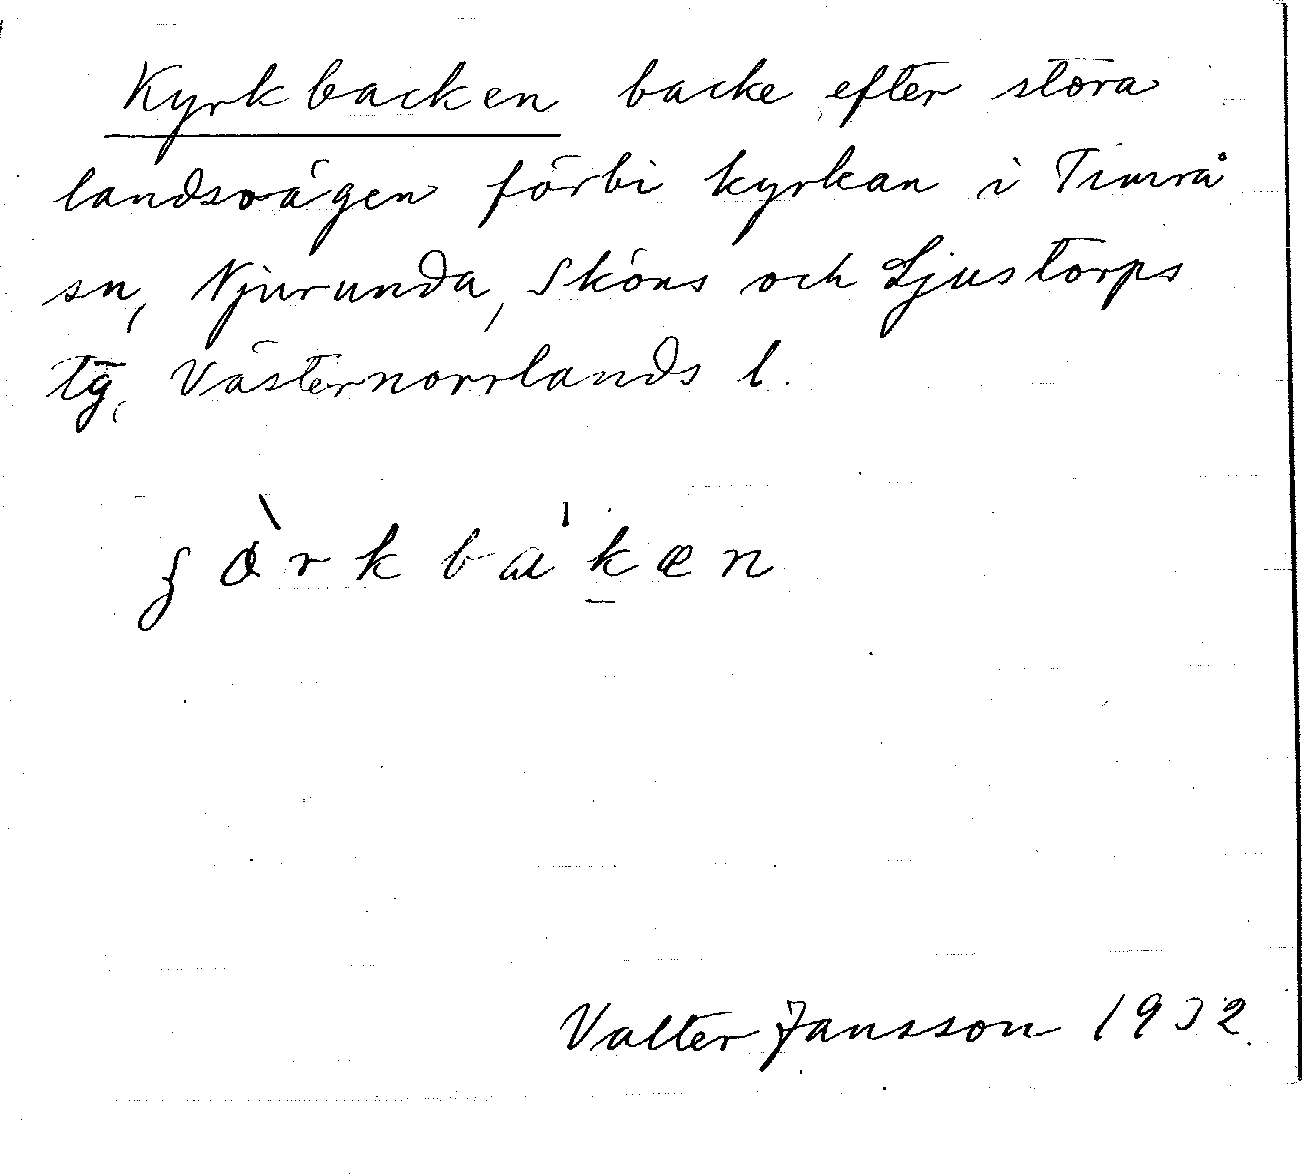 Kyrkbacken backe efter stora
landsvägen förbi kyrkan i Timrå
sn, Njurunda, Sköns och Ljustorps
tg, Västernorrlands l.
Valter Jansson 1932.